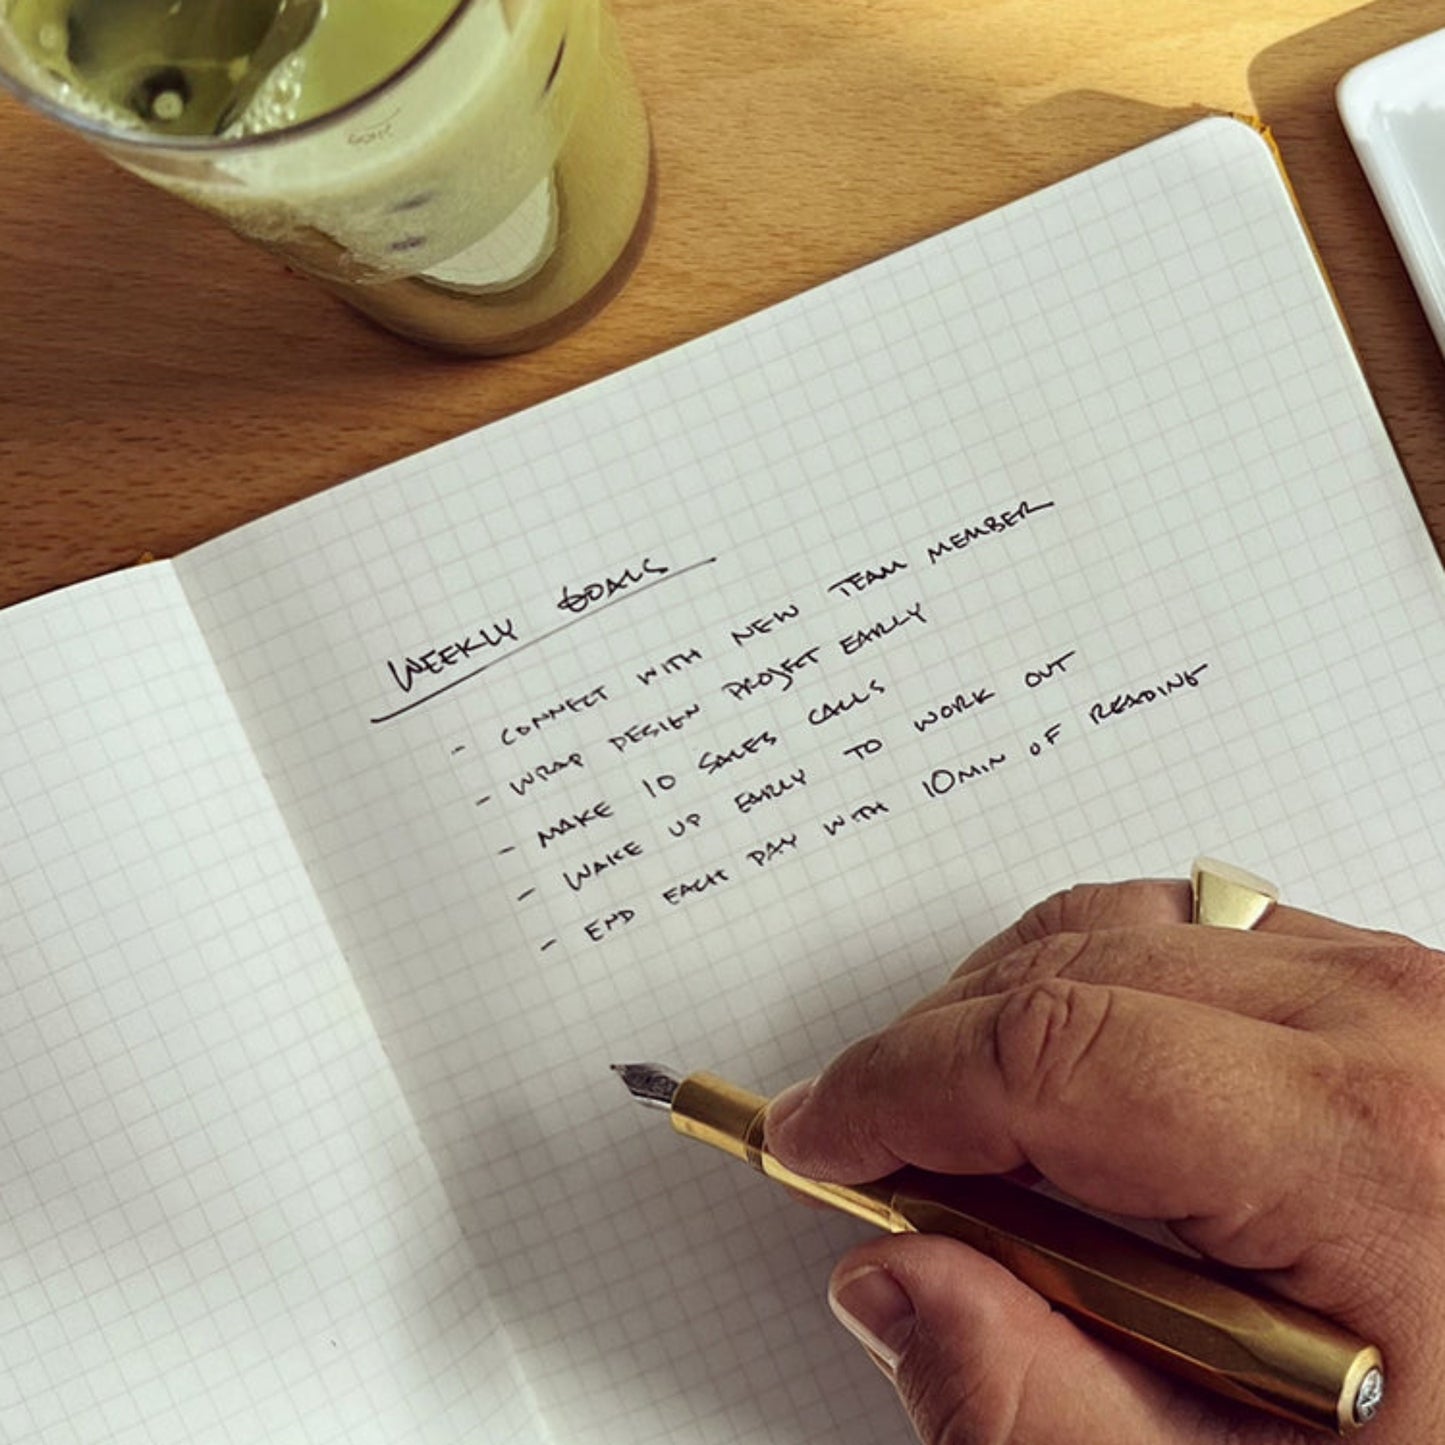 WEEKLY GOALS
- CONNECT WITH NEW TEAM MEMBER
- WRAP DESIGN PROJECT EARLY
- MAKE 10 SALES CALLS
- WAKE UP EARLY TO WORK OUT
- END EACH DAY WITH 10MIN OF READING